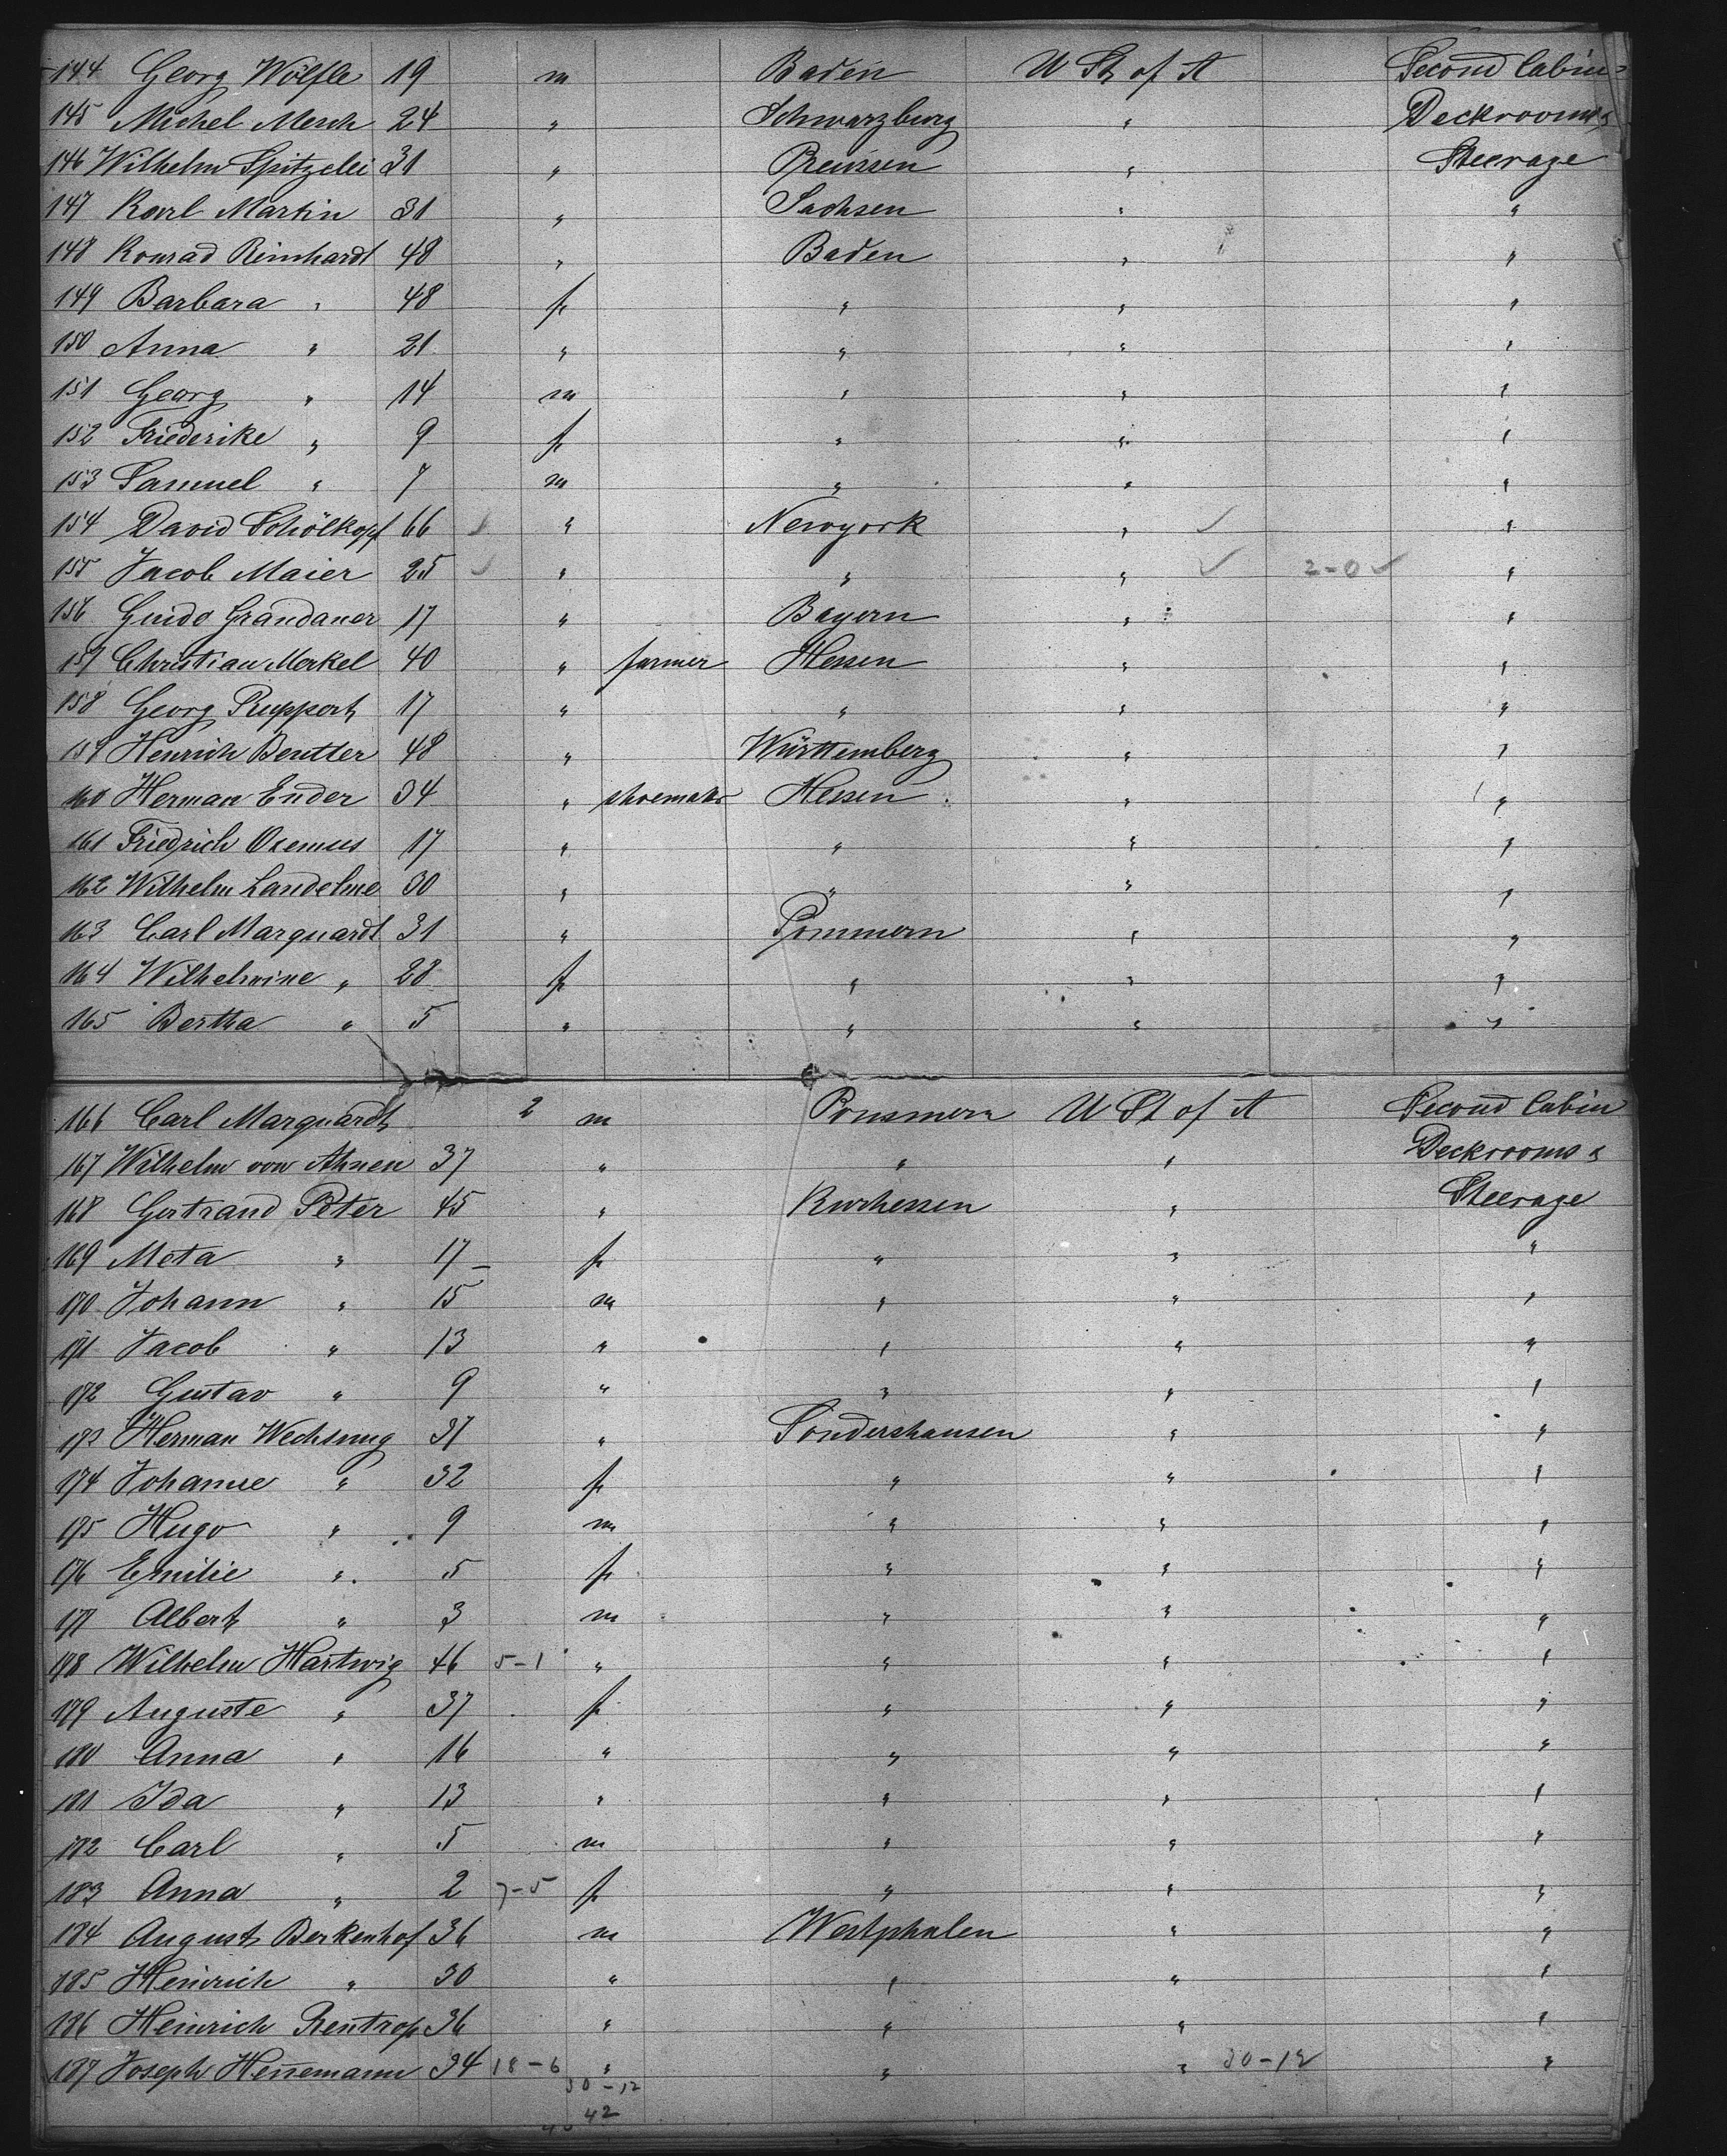 144 Georg Wölfle 19 m Baden U St of A Second Cabin
145 Michel Mesch 24 " Schwarzburg " Deckrooms &
146 Wilhelm Spitzlei 31 " Preussen " Steerage
147 Karl Martin 31 " Sachsen " "
148 Konrad Reinhardt 48 " Baden " "
149 Barbara " 48 f " " "
150 Anna " 21 " " " "
151 Georg " 14 m " " "
152 Friederike " 9 f " " "
153 Samuel " 7 m " " "
154 David Schölkopf 66 ✓ " Newyork " ✓ "
155 Jacob Maier 25 ✓ " " " ✓ 2-0 ✓ "
156 Guido Grandaner 17 " Bayern " "
157 Christian Merkel 40 " farmer Hessen " "
158 Georg Ruppert 17 " " " "
159 Henrich Beutter 48 " Württemberg " "
160 Herman Ender 34 " shoemakr Hessen " "
161 Friedrich Oxemus 17 " " " "
162 Wilhelm Landelme 30 " " " "
163 Carl Marquardt 31 " Pommern " "
164 Wilhelmine " 28 f " " "
165 Bertha " 5 " " " "
166 Carl Marquardt 2 m Pommern U St of A Second Cabin
167 Wilhelm von Ahnen 37 " " " Deckrooms &
168 Gertrand Peter 45 " Kurhessen " Steerage
169 Meta " 17 f " " "
170 Johann " 15 m " " "
171 Jacob " 13 " " " "
172 Gustav " 9 " " " "
173 Herman Wechsung 37 " Sondershausen " "
174 Johanne " 32 f " " "
175 Hugo " 9 m " " "
176 Emilie " 5 f " " "
177 Albert " 3 m " " "
178 Wilhelm Hartwig 46 5-1 " " " "
179 Auguste " 37 f " " "
180 Anna " 16 " " " "
181 Ida " 13 " " " "
182 Carl " 5 m " " "
183 Anna " 2 7-5 f " " "
184 August Berkenhof 36 m Westphalen " "
185 Heinrich " 30 " " " "
186 Heinrich Rentrop 36 " " " "
187 Joseph Hennemann 34 18-6 " " " 30-12 "
30-12
42